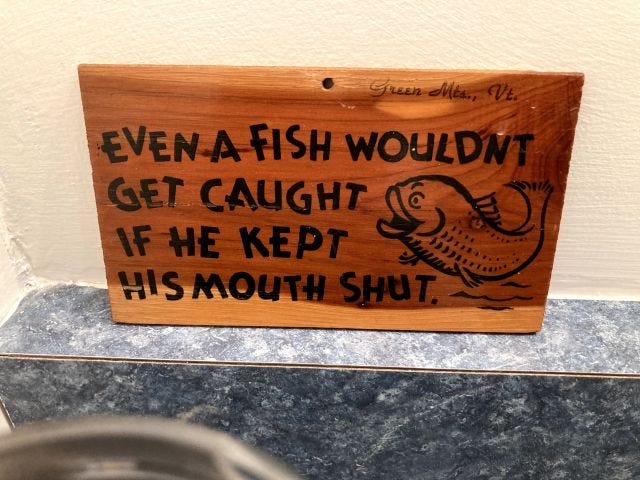 Green Mts., Vt.
EVEN A FISH WOULDNT
GET CAUGHT
IF HE KEPT
HIS MOUTH SHUT.